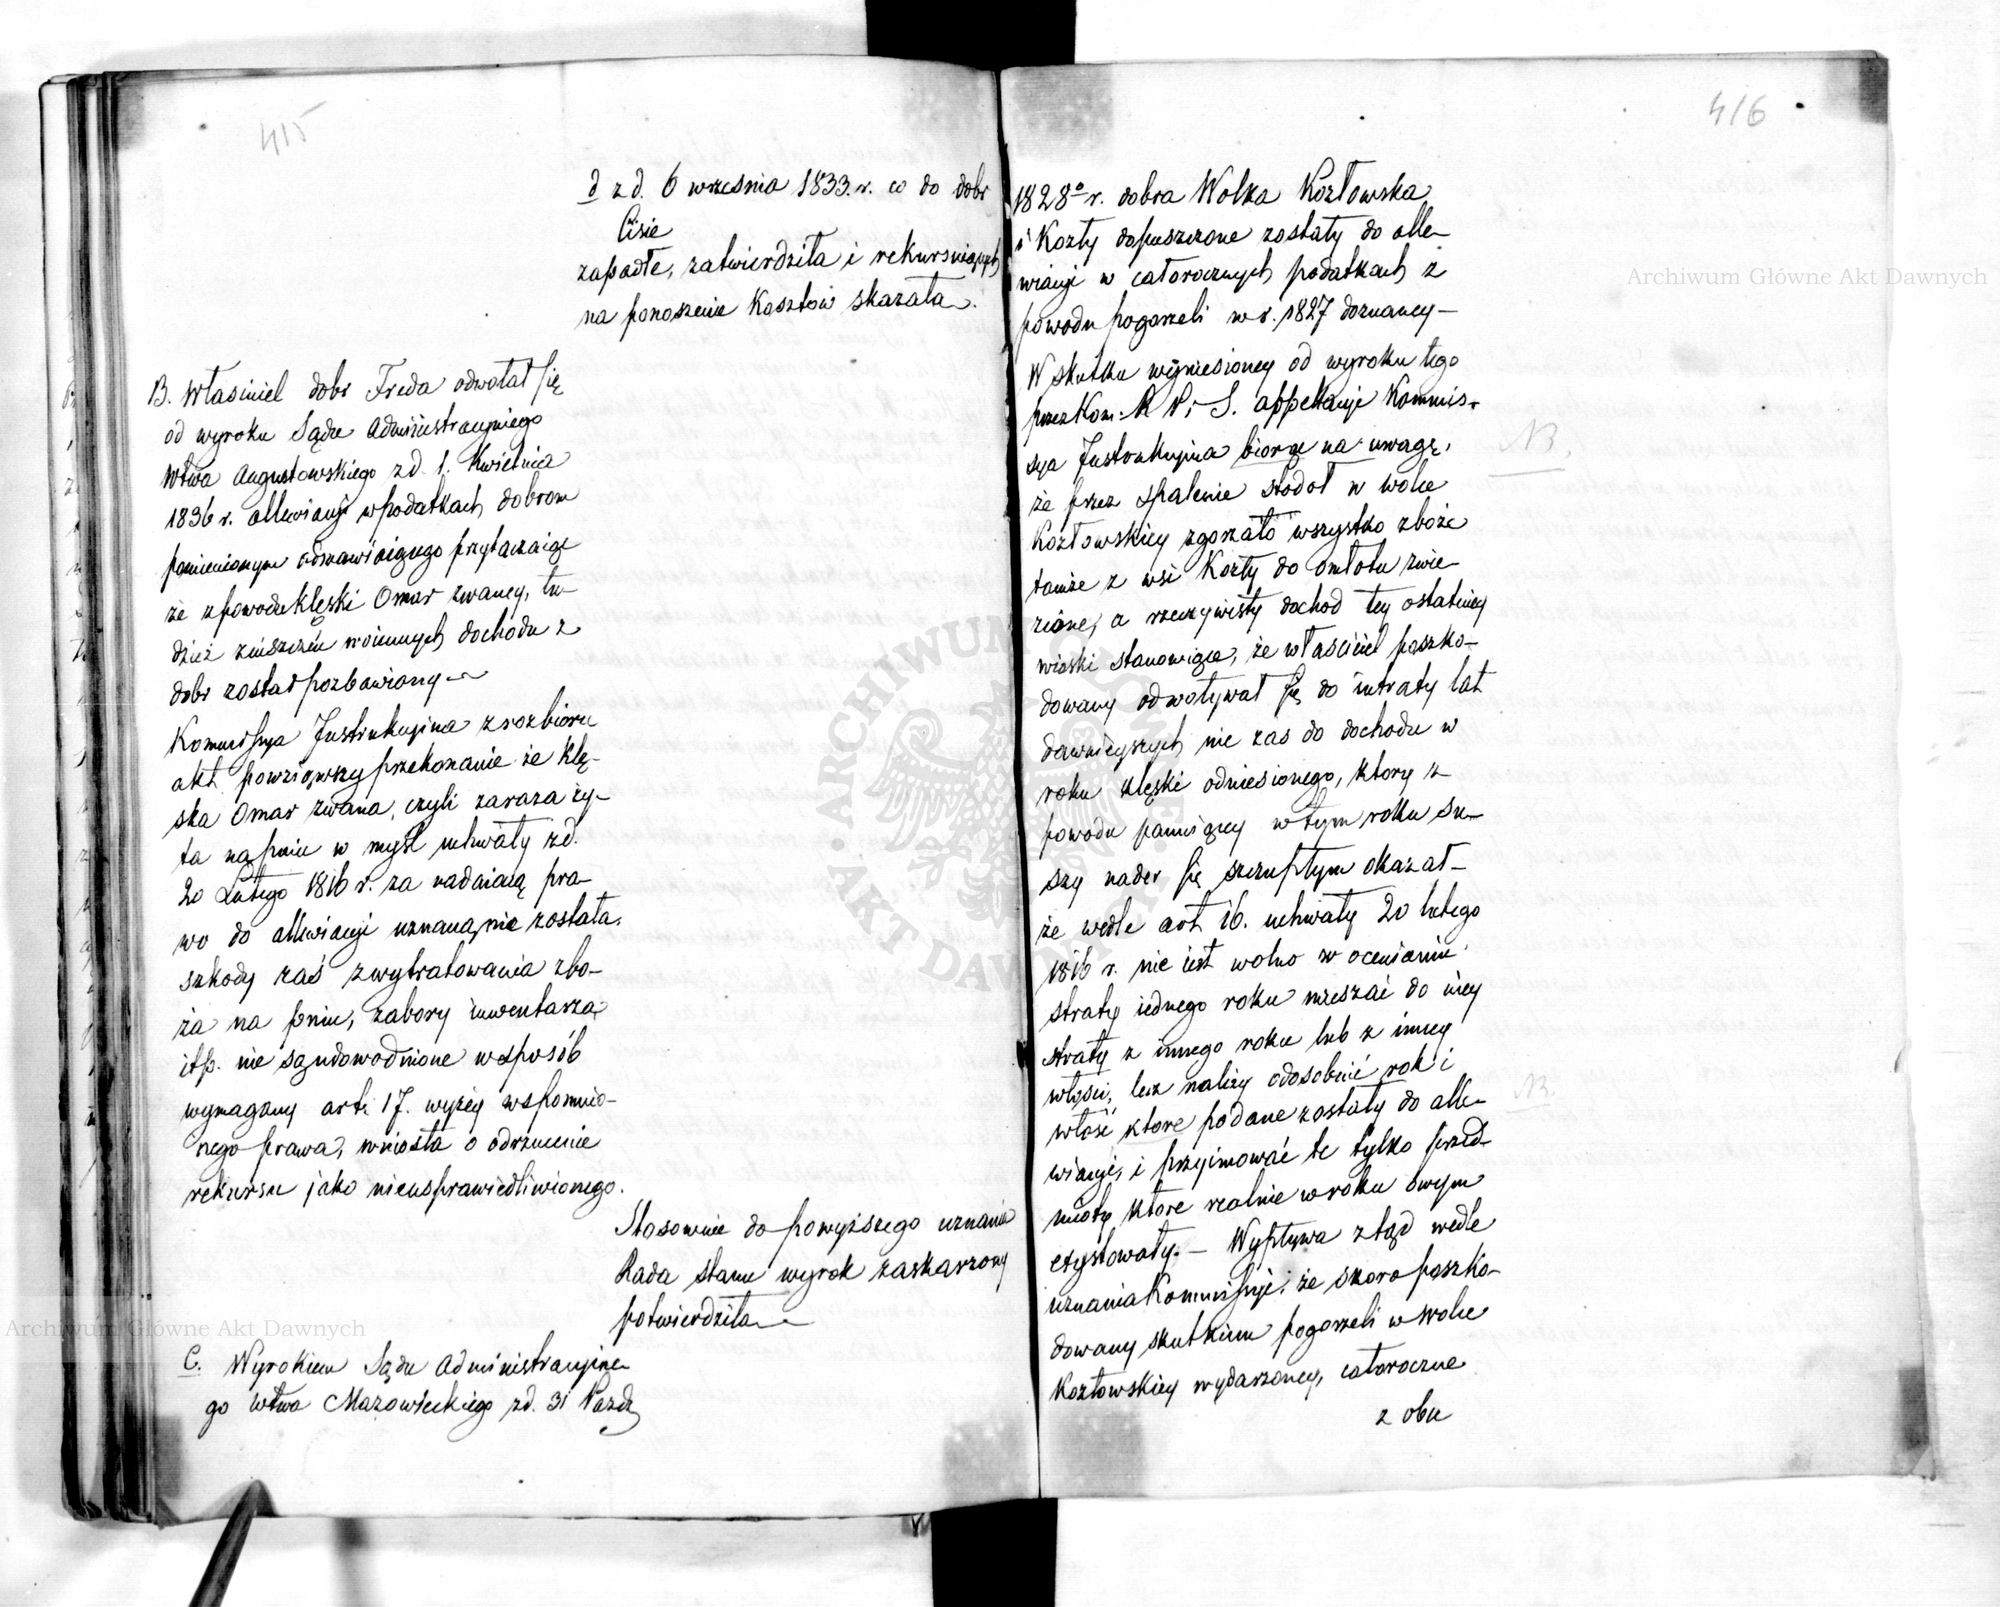 415
d z d. 6 września 1833. r. co do dobr
Cisie
zapadłe, zatwierdziła i rekursuiących
na ponoszenie kosztów skazała.
B. Właściciel dobr Freda odwołał się
od wyroku Sądu Administracyinego
Wtwa Augustowskiego z d. 1. Kwietnia
1836 r. allewiacyi w podatkach dobrom
pomienionym odmawiaiącego przytaczaiąc
że z powodu klęski Omar zwaney, tu-
dzież zniszczeń woiennych dochodu z
dobr został pozbawiony —
Kommissya Instrukcyina z rozbioru
akt powziąwszy przekonanie że klę-
ska Omar zwana, czyli zaraza ży-
ta na pniu w myśl uchwały z d.
20 Lutego 1816 r. za nadaiącą pra-
wo do allewiacyi uznaną nie została.
szkody zaś z wytratowania zbo-
ża na pniu, zabory inwentarza
itp. nie są udowodnione w sposób
wymagany art: 17. wyżey wspomnio-
nego prawa, wniosła o odrzucenie
rekursu jako nieusprawiedliwionego.
Stosownie do powyższego uznania
Rada stanu wyrok zaskarżony
potwierdziła —
C. Wyrokiem Sądu Administracyine-
go Wtwa Mazowieckiego z d. 31 Paźdz
416
1828º r. dobra Wolka Kozłowska
i Kozły dopuszczone zostały do alle-
wiacyi w całorocznych podatkach z
powodu pogorzeli w r. 1827 doznaney —
W skutku wyniesioney od wyroku tego
przez Kom: R P. i S. appellacyi Kommis-
sya Instrukcyina biorąc na uwagę,
że przez spalenie stodoł w wolce
Kozłowskiey zgorzało wszystko zboże
tamże z wsi Kozły do omłotu zwie-
zione, a rzeczywisty dochod tey ostatniey
wioski stanowiące, że właściciel poszko-
dowany odwoływał się do intraty lat
dawnieyszych nie zas do dochodu w
roku klęski odniesionego, ktory z
powodu panuiącey w tym roku su-
szy nader się szczupłym okazał —
że wedle art 16. uchwały 20 lutego
1816 r. nie iest wolno w ocenianiu
straty iednego roku mieszać do niey
straty z innego roku lub z inney
włości, lecz należy odosobnić rok i
włość ktore podane zostały do alle-
wiacyi, i przyimować te tylko przed-
mioty które realnie w roku owym
exystowały. — Wypływa ztąd wedle
uznania Kommissyi, że skoro poszko-
dowany skutkiem pogorzeli w wolce
Kozłowskiey wydarzoney, całoroczne
z obu
NB.
NB.
Archiwum Główne Akt Dawnych
Archiwum Główne Akt Dawnych
ARCHIWUM GŁÓWNE AKT DAWNYCH